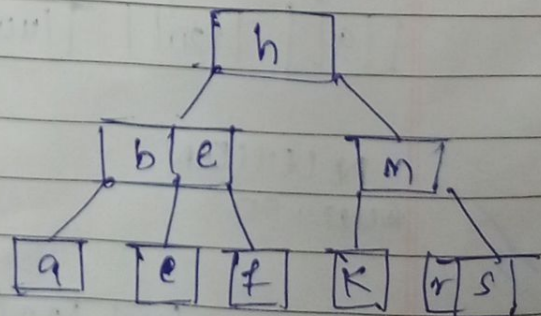 h
b e m
a e f K r s